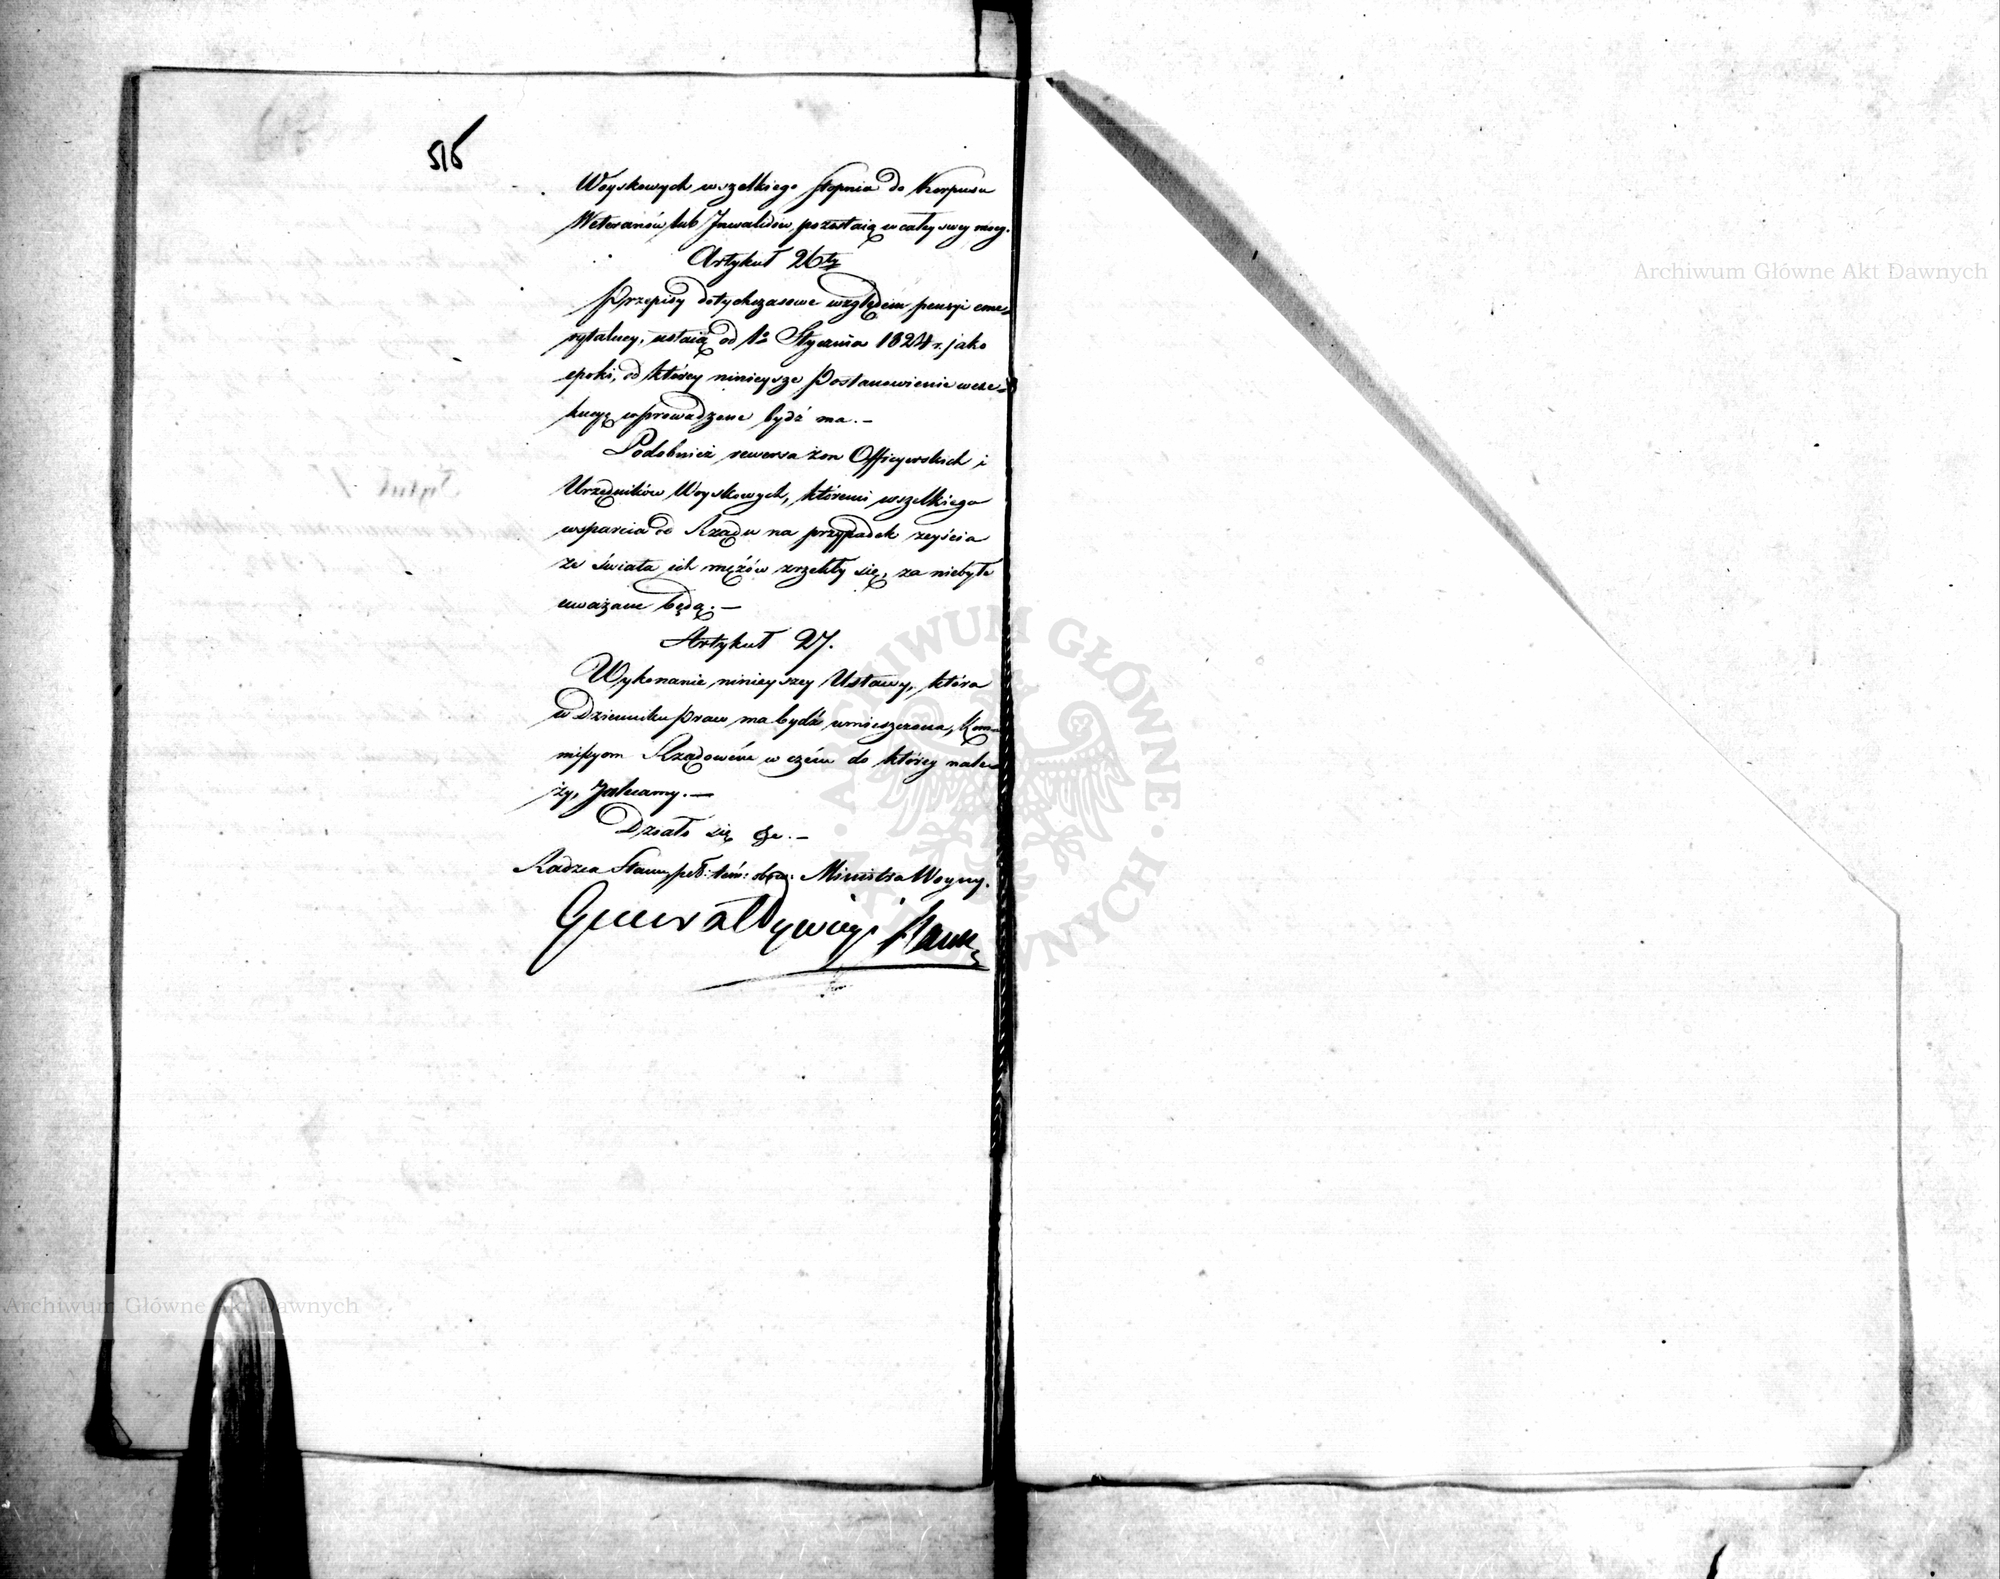 516
Woyskowych wszelkiego stopnia do Korpusu
Weteranów lub Inwalidów, pozostaią w całey swey mocy.
Artykuł 26ty
Przepisy dotychczasowe względem pensyi eme-
rytalney, ustaią od 1o Stycznia 1824 r. jako
epoki, od którey ninieysze Postanowienie w exe-
kucyę wprowadzone bydź ma.–
Podobnież rewersa żon Officyerskich i
Urzędników Woyskowych, któremi wszelkiego
wsparcia od Rządu na przypadek zeyścia
ze świata ich mężów zrzekły się, za niebyłe
uważane będą.–
Artykuł 27.
Wykonanie ninieyszey Ustawy, która
w Dzienniku Praw ma bydź umieszczona, Kom-
missyom Rządowém w czém do którey nale-
ży, zalecamy.–
Działo się &c.–
Radzca Stanu peł: tém: obow: Ministra Woyny.
Generał Dywizyi Hauke
Archiwum Główne Akt Dawnych
Archiwum Główne Akt Dawnych
ARCHIWUM GŁÓWNE AKT DAWNYCH